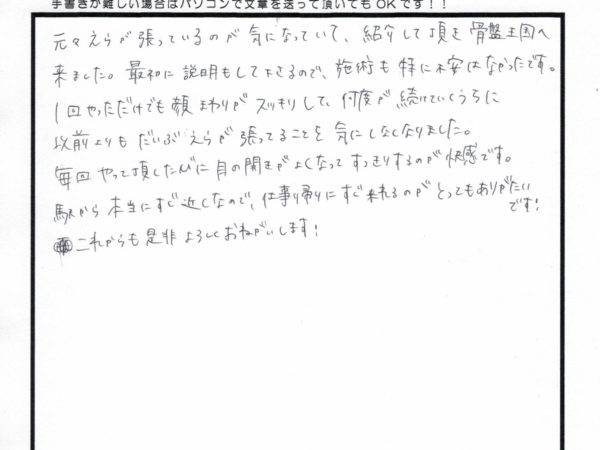 手書きが難しい場合はパソコンで文章を送って頂いてもOKです！！
元々えらが張っているのが気になっていて、紹介して頂き骨盤王国へ
来ました。最初に説明もして下さるので、施術も特に不安はなかったです。
1回やっただけでも顔まわりがスッキリして、何度か続けていくうちに
以前よりもだいぶえらが張ってることを気にしなくなりました。
毎回やって頂くたびに目の開きがよくなってすっきりするのが快感です。
駅から本当にすぐ近くなので、仕事帰りにすぐ来れるのがとってもありがたい
です！
これからも是非よろしくおねがいします！